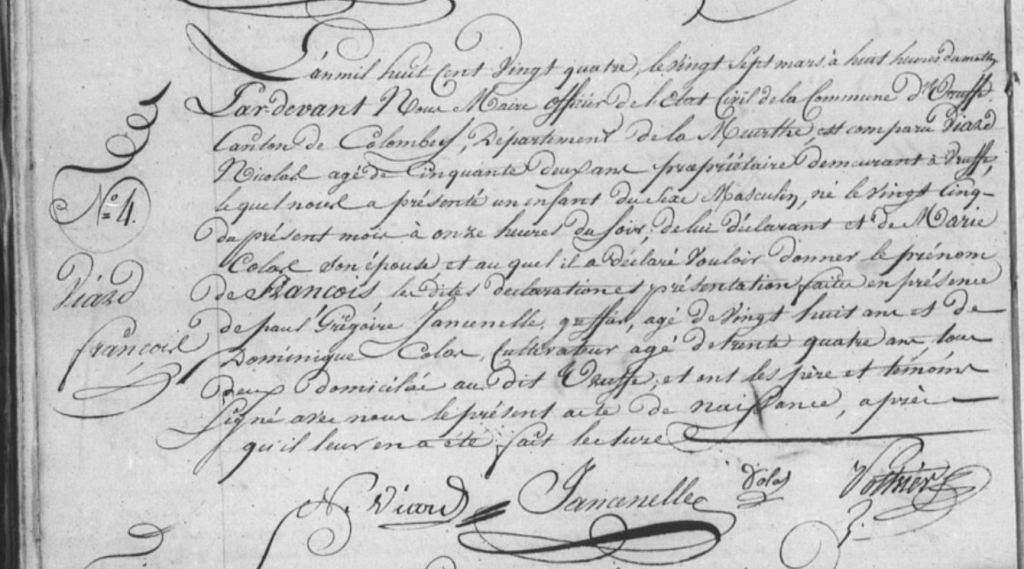 L'an mil huit cent Vingt quatre, le vingt sept mars à huit heures du matin
Par devant Nous Maire officier de l'Etat Civil de la Commune d'Uruffe
Canton de Colombey, Département de la Meurthe, est comparu Viard
Nicolas agé de Cinquante deux ans propriétaire, demeurant à Uruffe,
lequel nous a présenté un enfant du sexe Masculin, né le Vingt Cinq
du présent mois à onze heures du soir, de lui déclarant et de Marie
N° 4.
Colas son épouse et auquel il a déclaré Vouloir donner le prénom
Viard
de François, les dites déclaration et présentation faite en présence
François
de paul Grégoire Jancenelle, greffier, agé de Vingt huit ans et de
Dominique Colas, Cultivateur agé de trente quatre ans tous
deux domiciliés au dit Uruffe, et ont les père et témoins
signé avec nous le présent acte de naissance, après
qu'il leur en a été fait lecture
N. Viard Jancenelle Colas